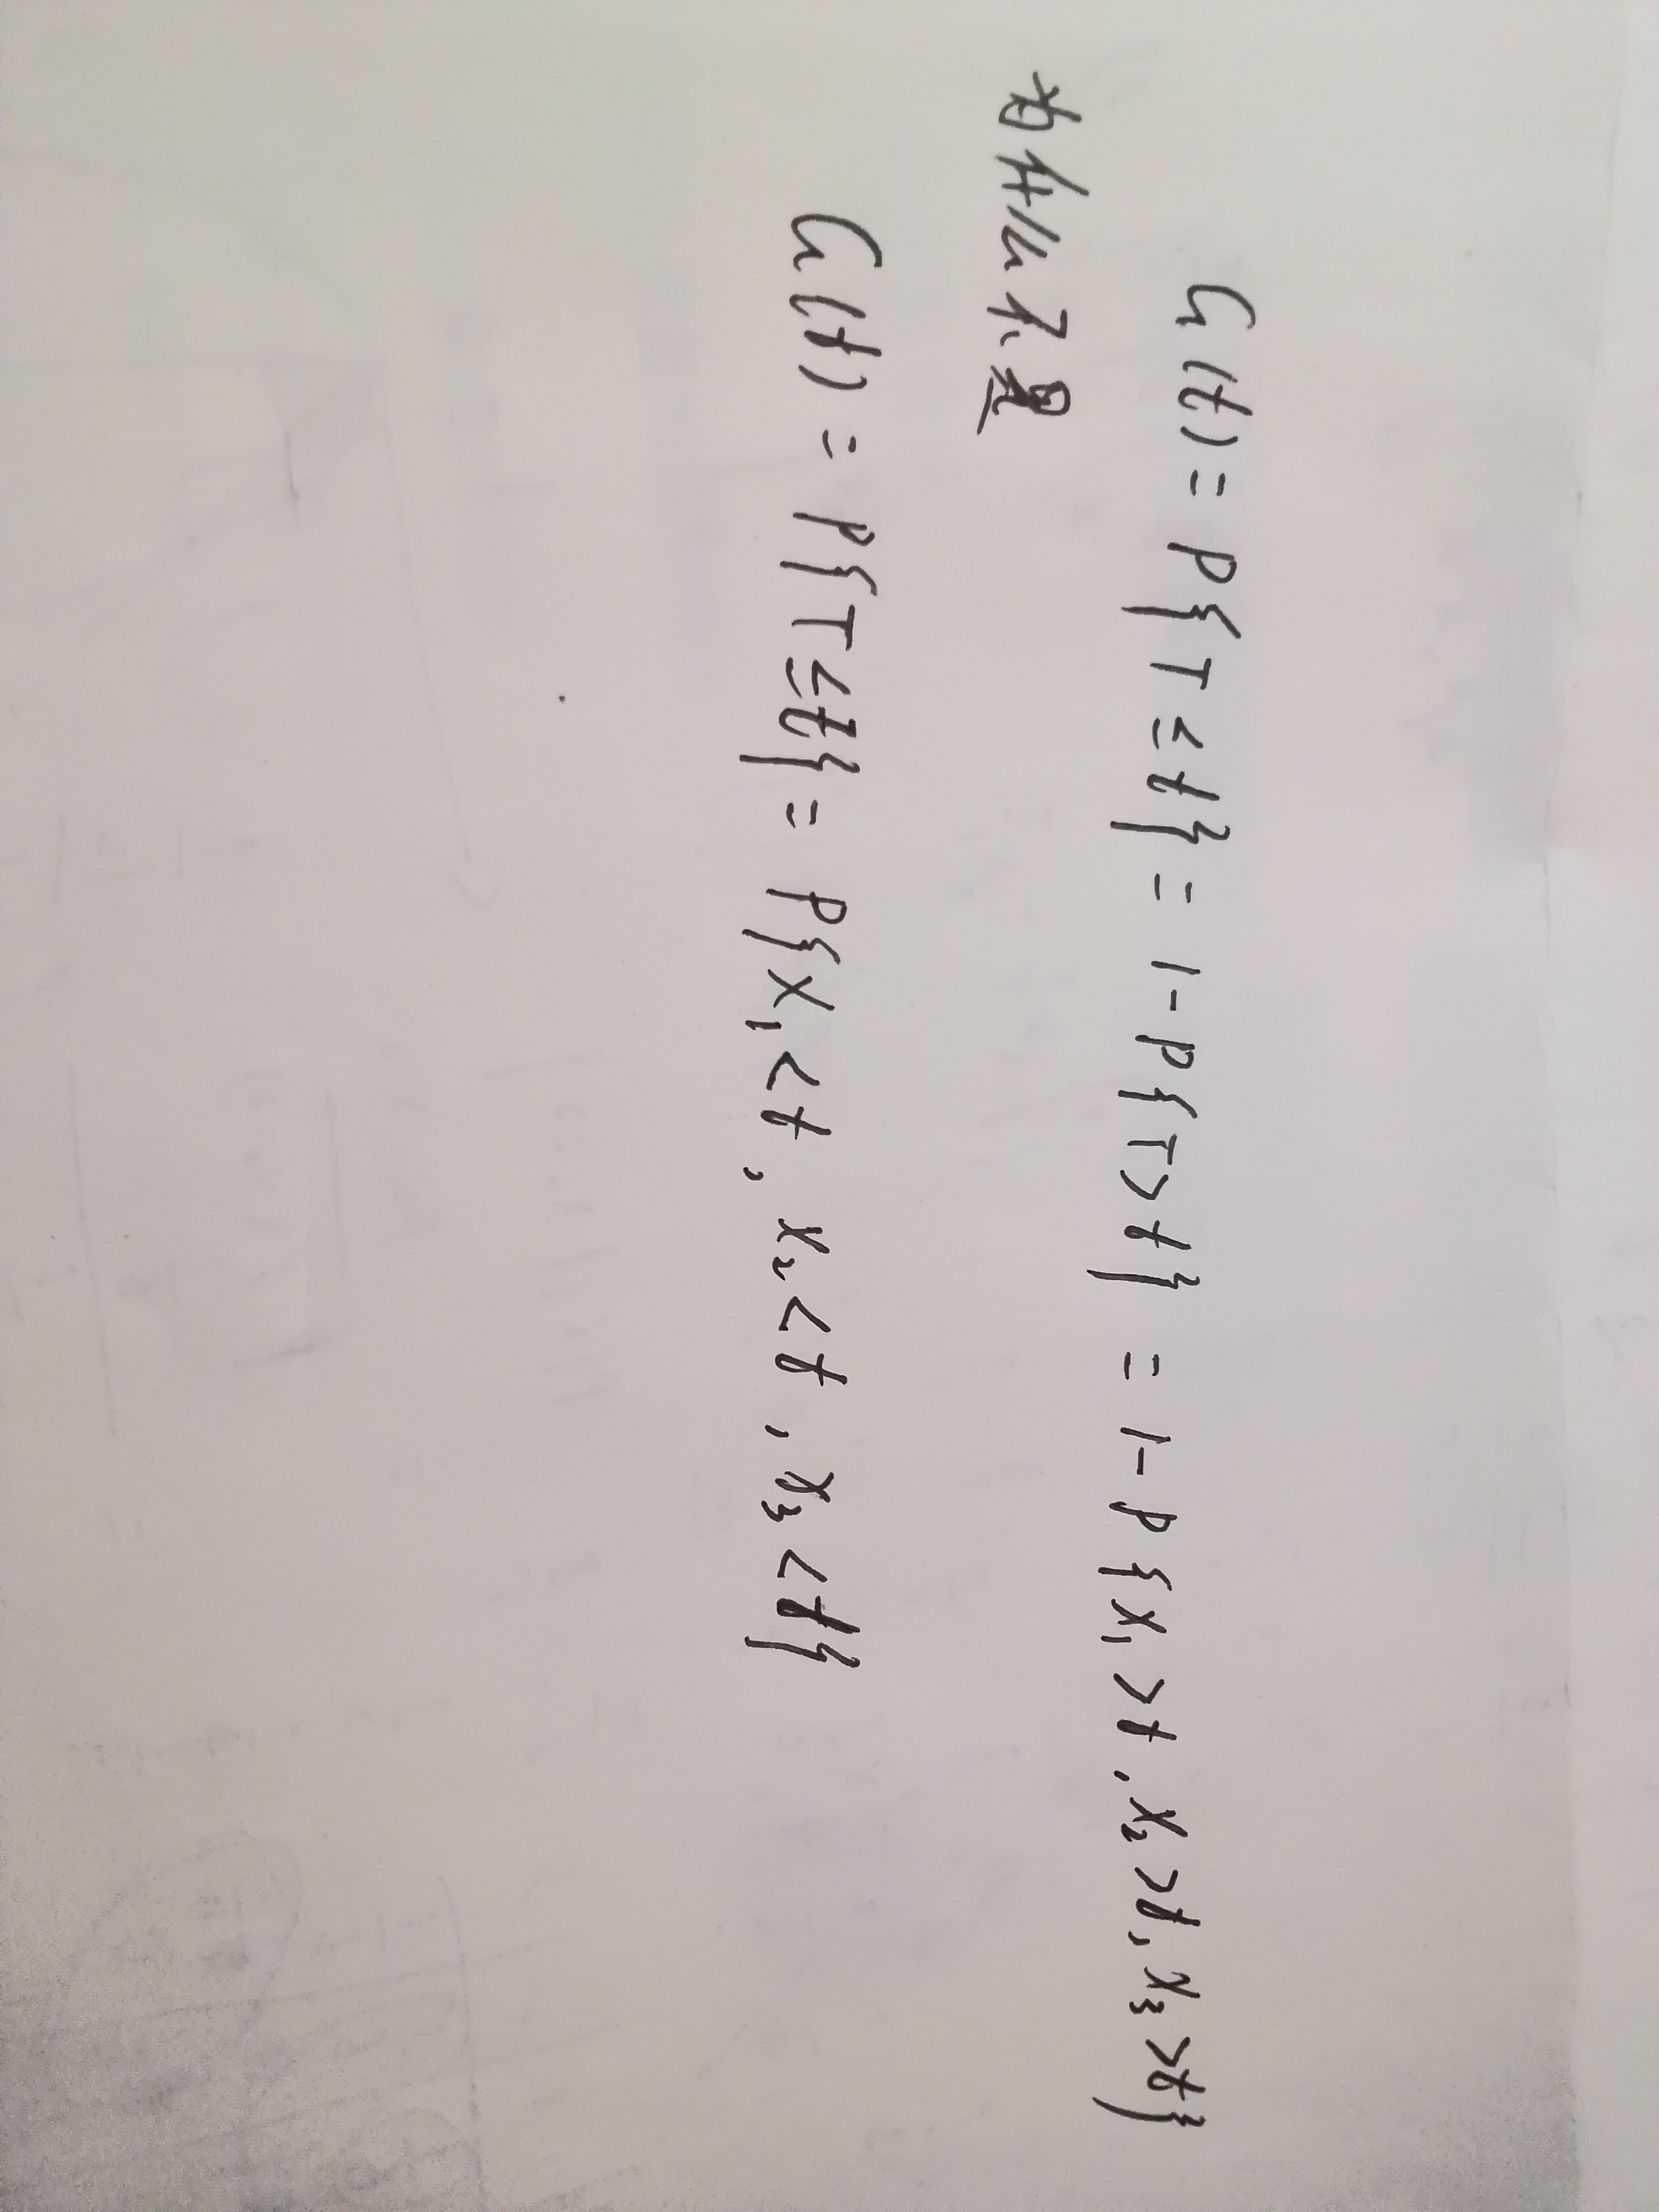 G(t) = P{T ≤ t} = 1 - P{T > t} = 1 - P{X₁ > t, X₂ > t, X₃ > t}
为什么不是
G(t) = P{T ≤ t} = P{X₁ < t, X₂ < t, X₃ < t}